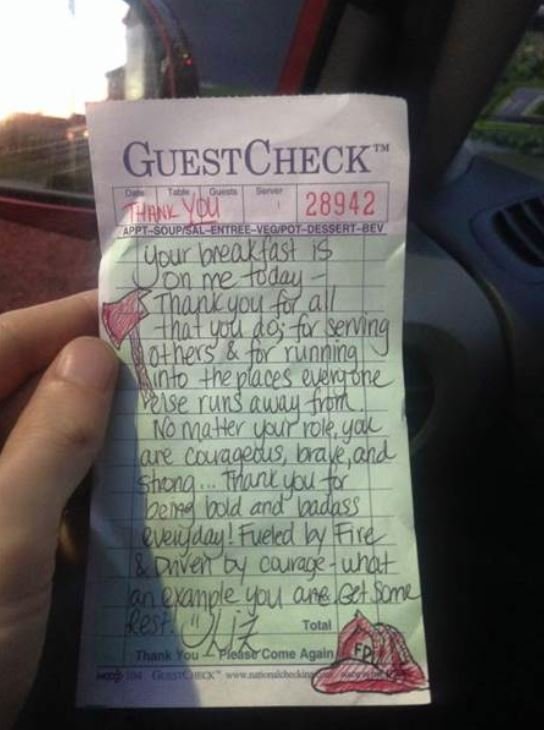 GUESTCHECK™
Date Table Guests Server
THANK YOU 28942
APPT-SOUP/SAL-ENTREE-VEG/POT-DESSERT-BEV
your breakfast is
on me today -
Thank you for all
that you do; for serving
others & for running
into the places everyone
else runs away from.
No matter your role, you
are courageous, brave, and
strong... Thank you for
being bold and badass
everyday! Fueled by Fire
& Driven by courage - what
an example you are. Get some
Rest. Liz
Total
FD
Thank You Please Come Again
104 GUESTCHECK™ www.nationalchecking